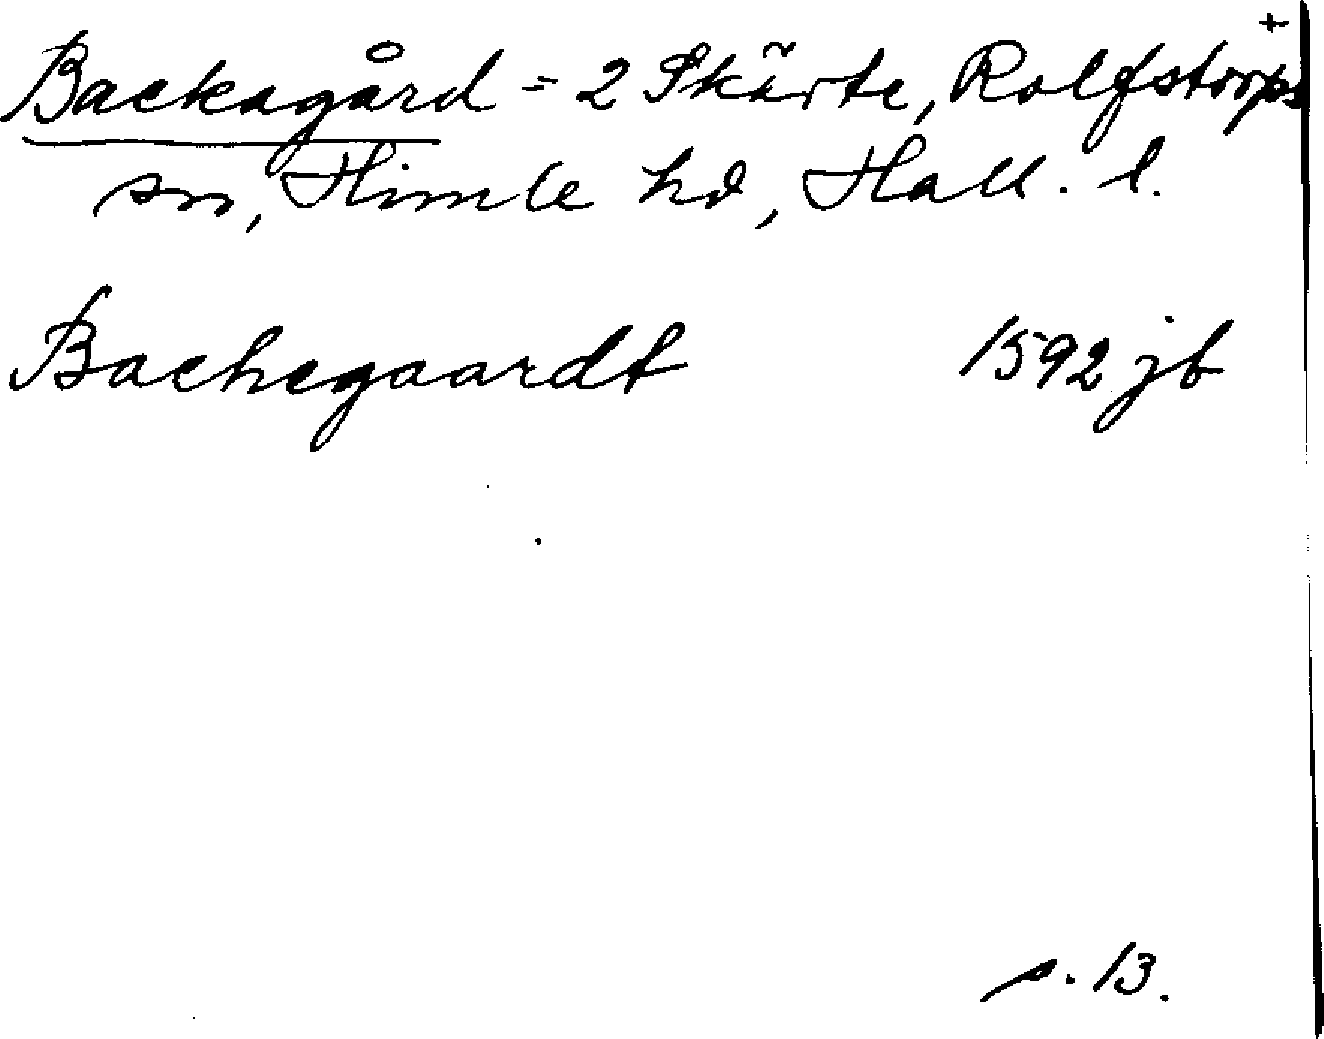 +
Backagård = 2 Skärte, Rolfstorps
sn, Himle hd, Hall. l.
Bachegaardt 1592 jb
s. 13.